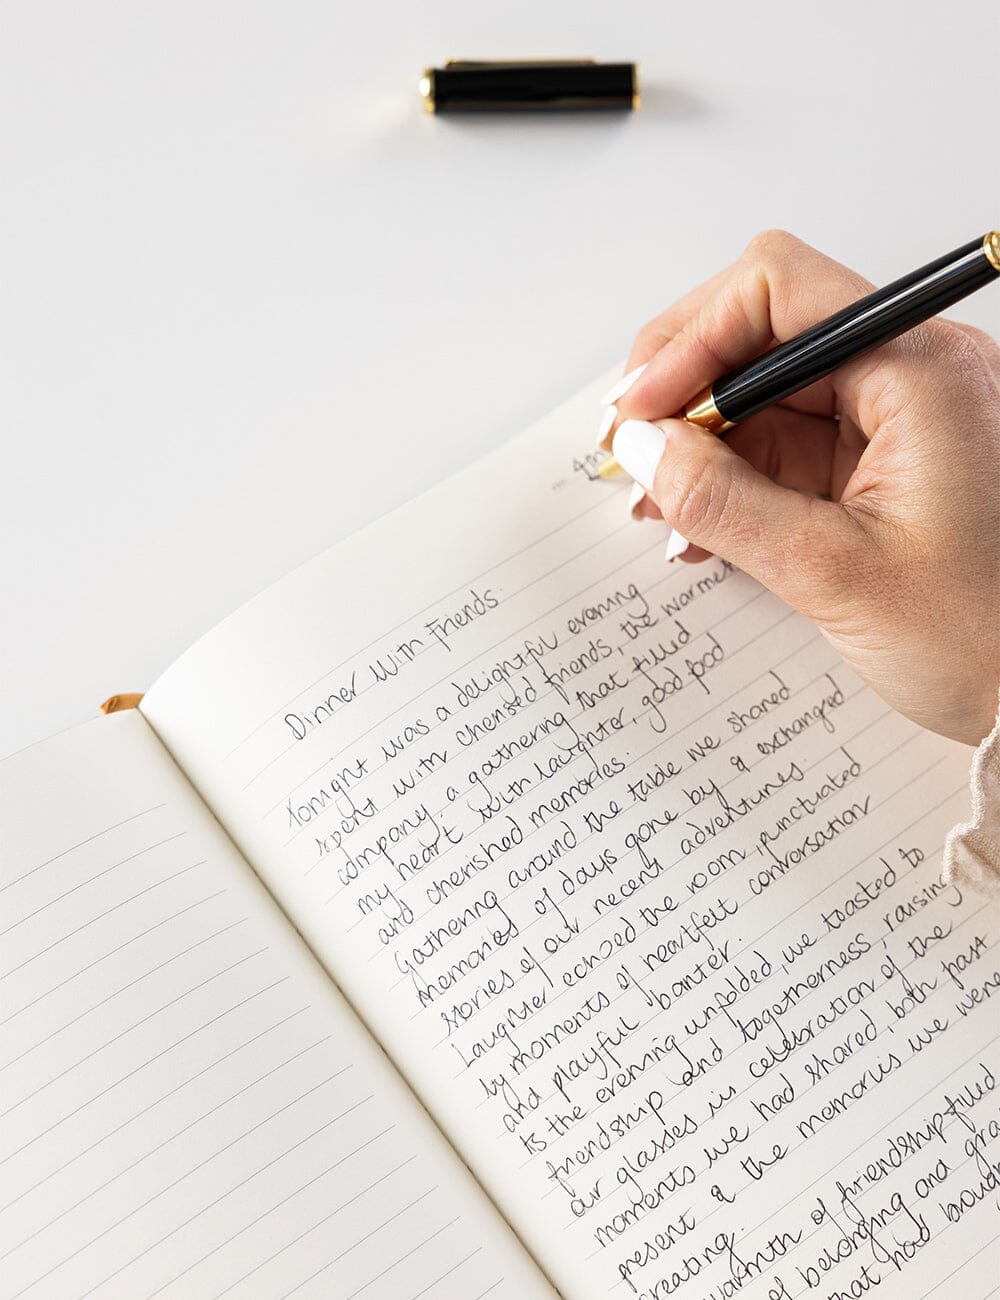 4th
Dinner with Friends.
Tonight was a delightful evening
spent with cherised friends, the warmest
company, a gathering that filled
my heart with laughter, good food
and cherished memories.
Gathering around the table we shared
memories of days gone by & exchanged
stories of our recent adventures.
Laughter echoed the room, punctuated
by moments of heartfelt conversation
and playful banter.
As the evening unfolded, we toasted to
friendship and togetherness, raising
our glasses in celebration of the
moments we had shared, both past
present & the memories we were
creating.
warmth of friendship filled
of belonging and gra
that had bough